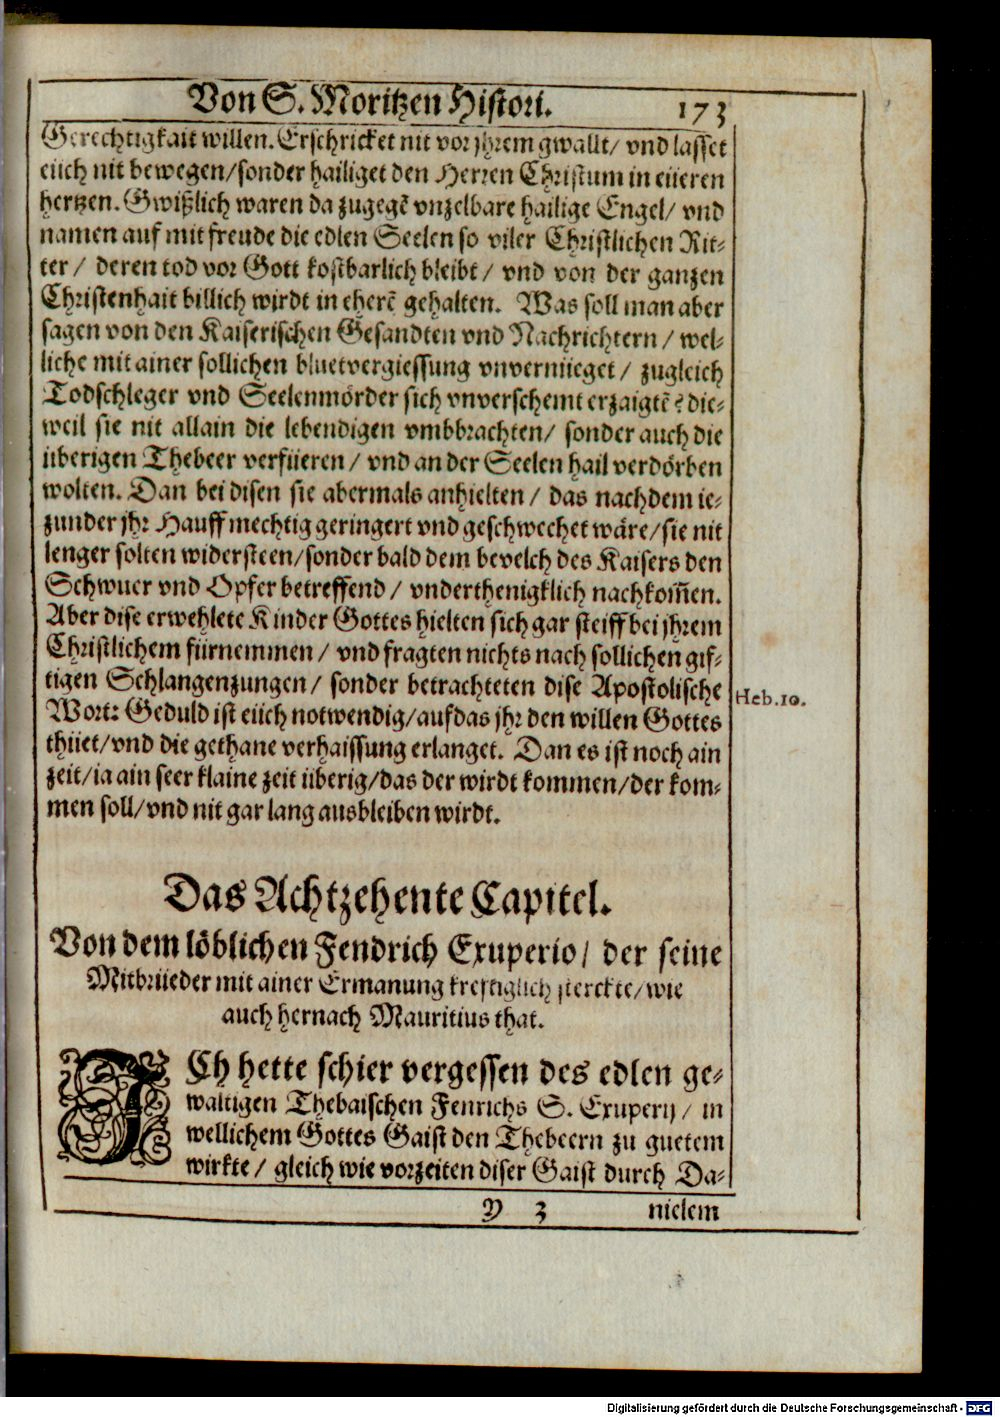 Von S. Moritzen Histori. 173
Gerechtigkait willen. Erschricket nit vor jhrem gwallt/ vnd lasset
eüch nit bewegen/sonder hailiget den Herren Christum in eüeren
hertzen. Gwißlich waren da zugegē vnzelbare hailige Engel/ vnd
namen auf mit freude die edlen Seelen so viler Christlichen Rit-
ter/ deren tod vor Gott kostbarlich bleibt/ vnd von der ganzen
Christenhait billich wirdt in eherē gehalten. Was soll man aber
sagen von den Kaiserischen Gesandten vnd Nachrichtern/ wel-
liche mit ainer sollichen bluetvergiessung vnvernüeget/ zugleich
Todschleger vnd Seelenmörder sich vnverschemt erzaigtē? die-
weil sie nit allain die lebendigen vmbbrachten/ sonder auch die
überigen Thebeer verfüeren/ vnd an der Seelen hail verdörben
wolten. Dan bei disen sie abermals anhielten/ das nachdem ie-
zunder jhr Hauff mechtig geringert vnd geschwechet wäre/sie nit
lenger solten widersteen/sonder bald dem bevelch des Kaisers den
Schwuer vnd Opfer betreffend/ vnderthenigklich nachkom̄en.
Aber dise erwehlete Kinder Gottes hielten sich gar steiff bei jhrem
Christlichem fürnemmen/ vnd fragten nichts nach sollichen gif-
tigen Schlangenzungen/ sonder betrachteten dise Apostolische
Wort: Geduld ist eüch notwendig/auf das jhr den willen Gottes
thüet/vnd die gethane verhaissung erlanget. Dan es ist noch ain
zeit/ia ain seer klaine zeit überig/das der wirdt kommen/der kom-
men soll/vnd nit gar lang ausbleiben wirdt.
Heb.10.
Das Achtzehente Capitel.
Von dem löblichen Fendrich Exuperio/ der seine
Mitbrüeder mit ainer Ermanung kreftiglich sterckte/wie
auch hernach Mauritius that.
ICh hette schier vergessen des edlen ge-
waltigen Thebaischen Fenrichs S. Exuperij/ in
wellichem Gottes Gaist den Thebeern zu guetem
wirkte/ gleich wie vorzeiten diser Gaist durch Da-
Y 3 nielem
Digitalisierung gefördert durch die Deutsche Forschungsgemeinschaft - DFG